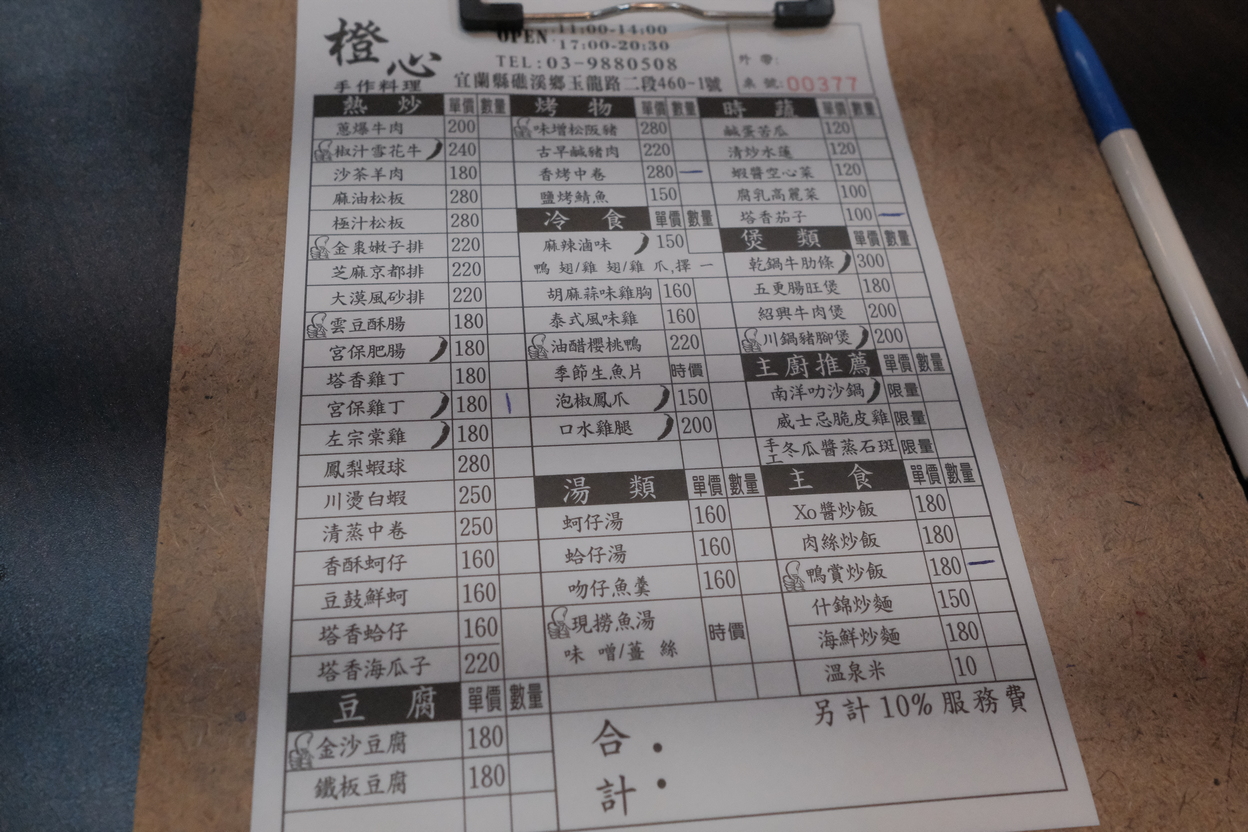 橙心
手作料理
OPEN 11:00-14:00
17:00-20:30
TEL:03-9880508
宜蘭縣礁溪鄉玉龍路二段460-1號
外帶:
桌號:00377
熱炒 單價 數量
蔥爆牛肉 200
椒汁雪花牛 240
沙茶羊肉 180
麻油松板 280
極汁松板 280
金棗嫩子排 220
芝麻京都排 220
大漠風砂排 220
雲豆酥腸 180
宮保肥腸 180
塔香雞丁 180
宮保雞丁 180
左宗棠雞 180
鳳梨蝦球 280
川燙白蝦 250
清蒸中卷 250
香酥蚵仔 160
豆鼓鮮蚵 160
塔香蛤仔 160
塔香海瓜子 220
豆腐 單價 數量
金沙豆腐 180
鐵板豆腐 180
烤物 單價 數量
味增松阪豬 280
古早鹹豬肉 220
香烤中卷 280
鹽烤鯖魚 150
冷食 單價 數量
麻辣滷味 150
鴨翅/雞翅/雞爪,擇一
胡麻蒜味雞胸 160
泰式風味雞 160
油醋櫻桃鴨 220
季節生魚片 時價
泡椒鳳爪 150
口水雞腿 200
湯類 單價 數量
蚵仔湯 160
蛤仔湯 160
吻仔魚羹 160
現撈魚湯 時價
味噌/薑絲
時蔬 單價 數量
鹹蛋苦瓜 120
清炒水蓮 120
蝦醬空心菜 120
腐乳高麗菜 100
塔香茄子 100
煲類 單價 數量
乾鍋牛肋條 300
五更腸旺煲 180
紹興牛肉煲 200
川鍋豬腳煲 200
主廚推薦 單價 數量
南洋叻沙鍋 限量
威士忌脆皮雞 限量
手工冬瓜醬蒸石斑 限量
主食 單價 數量
Xo醬炒飯 180
肉絲炒飯 180
鴨賞炒飯 180
什錦炒麵 150
海鮮炒麵 180
溫泉米 10
另計10%服務費
合計: